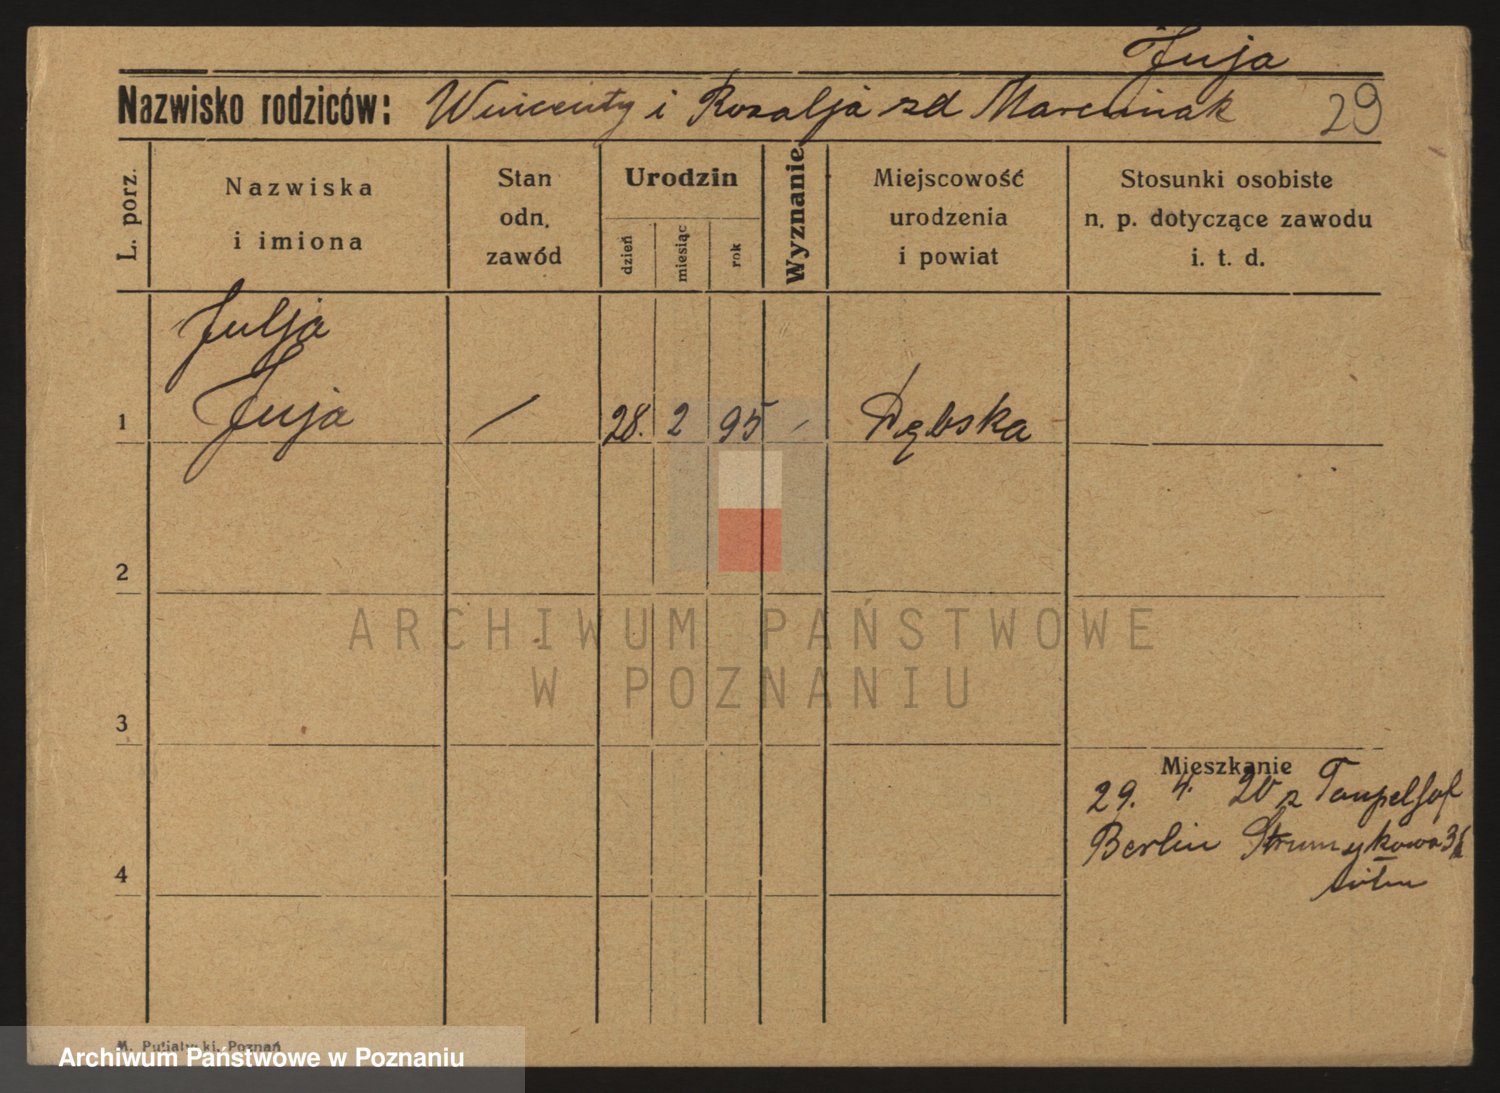 Juja
Nazwisko rodziców: Wincenty i Rozalja zd Marciniak 29
L. porz.
Nazwiska
i imiona
Stan
odn.
zawód
Urodzin
dzień
miesiąc
rok
Wyznanie
Miejscowość
urodzenia
i powiat
Stosunki osobiste
n. p. dotyczące zawodu
i. t. d.
Julja
1 Juja / 28. 2 95 / Dębska
2
3
4
Mieszkanie
29. 4. 20 z Tempelhof
Berlin Strumykowa
ARCHIWUM PAŃSTWOWE
W POZNANIU
M. Putiatycki, Poznań
Archiwum Państwowe w Poznaniu